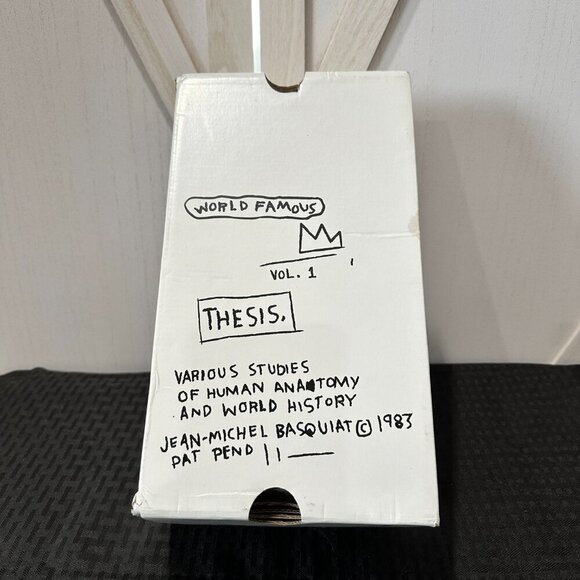 WORLD FAMOUS
VOL. 1
THESIS.
VARIOUS STUDIES
OF HUMAN ANATOMY
AND WORLD HISTORY
JEAN-MICHEL BASQUIAT © 1983
PAT PEND ||—